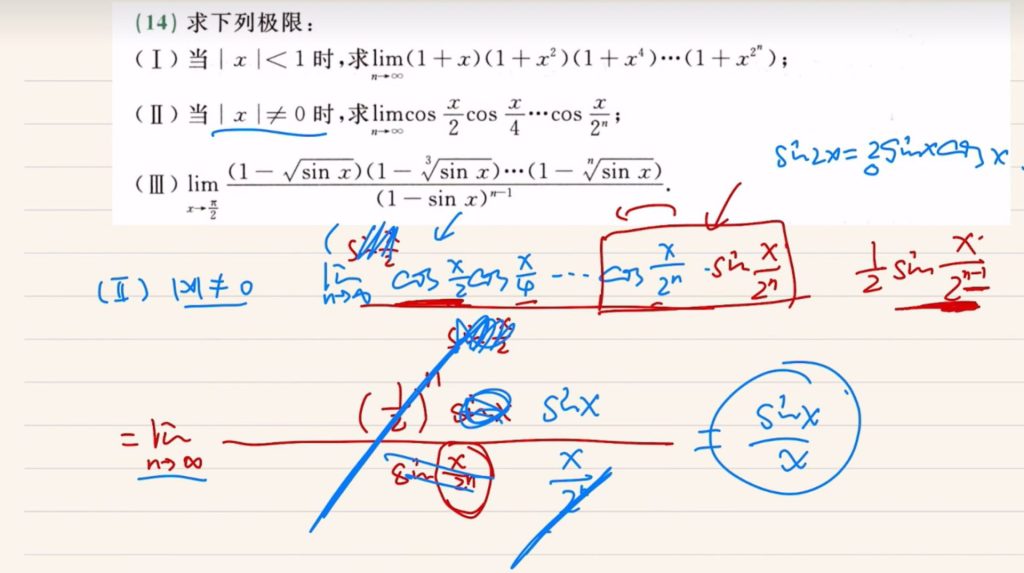 (14) 求下列极限:
(Ⅰ)当|x|<1时,求lim_{n→∞}(1+x)(1+x^2)(1+x^4)⋯(1+x^{2^n});
(Ⅱ)当|x|≠0时,求lim_{n→∞}cos x/2 cos x/4 ⋯cos x/2^n;
sin2x=2sinxcosx
(Ⅲ) lim_{x→π/2} (1-√(sin x))(1-∛(sin x))⋯(1-ⁿ√(sin x)) / (1-sin x)^{n-1}.
(Ⅱ) |x|≠0 lim_{n→∞} cos x/2 cos x/4 ⋯ cos x/2^n · sin x/2^n 1/2 sin x/2^{n-1}
= lim_{n→∞} (1/2)^n sinx / (x/2^n) = sinx/x
sin x/2^n